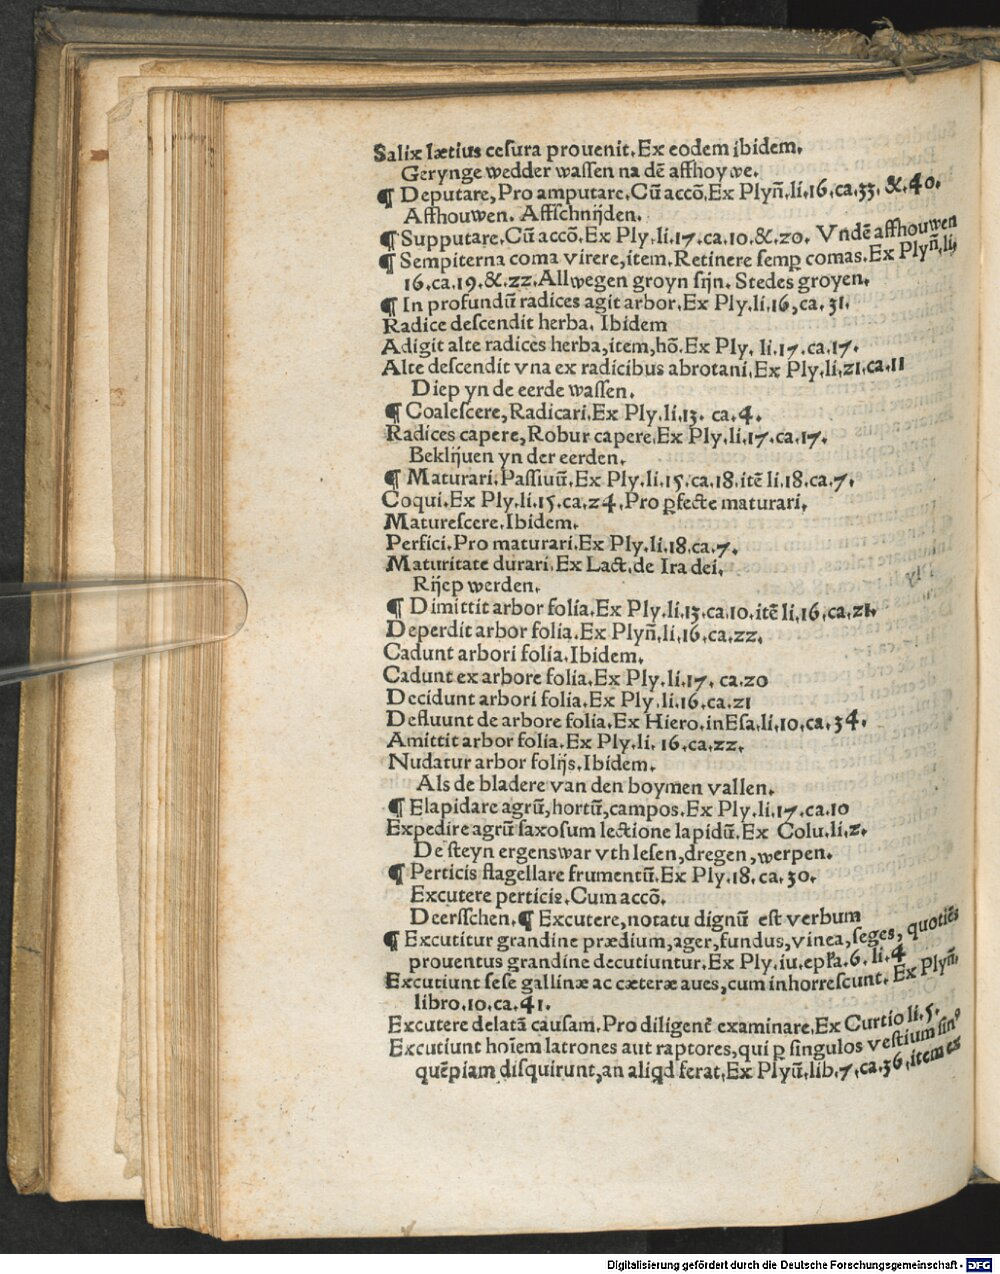 Salix lætius cesura prouenit. Ex eodem ibidem.
Gerynge wedder wassen na dē affhoywe.
¶ Deputare, Pro amputare. Cū accō. Ex Plyñ. li. 16, ca. 33. &. 40.
Affhouwen. Affschnijden.
¶ Supputare. Cū accō. Ex Ply. li. 17. ca. 10. &. 20. Vndē affhouwen
¶ Sempiterna coma virere, item. Retinere semꝑ comas. Ex Plyñ, li,
16. ca. 19. &. 22. Allwegen groyn sijn. Stedes groyen.
¶ In profundū radices agit arbor. Ex Ply. li. 16, ca. 31.
Radice descendit herba. Ibidem
Adigit alte radices herba, item, hō. Ex Ply. li. 17. ca. 17.
Alte descendit vna ex radicibus abrotani, Ex Ply. li, 21. ca. 11
Diep yn de eerde wassen.
¶ Coalescere, Radicari. Ex Ply. li. 13. ca. 4.
Radices capere, Robur capere. Ex Ply. li. 17. ca. 17.
Beklijuen yn der eerden.
¶ Maturari. Passiuū. Ex Ply. li. 15. ca. 18. itē li. 18. ca. 7.
Coqui. Ex Ply. li. 15. ca. 24. Pro ꝑfecte maturari.
Maturescere. Ibidem.
Perfici. Pro maturari. Ex Ply. li. 18. ca. 7.
Maturitate durari. Ex Lact. de Ira dei.
Rijep werden.
¶ Dimittit arbor folia. Ex Ply. li. 13. ca. 10. itē li, 16, ca. 21.
Deperdit arbor folia. Ex Plyñ. li, 16. ca. 22.
Cadunt arbori folia. Ibidem.
Cadunt ex arbore folia. Ex Ply. li. 17. ca. 20
Decidunt arbori folia. Ex Ply. li. 16. ca. 21
Defluunt de arbore folia. Ex Hiero. in Esa. li. 10, ca. 34.
Amittit arbor folia. Ex Ply. li. 16. ca. 22.
Nudatur arbor folijs. Ibidem.
Als de bladere van den boymen vallen.
¶ Elapidare agrū, hortū, campos. Ex Ply. li. 17. ca. 10
Expedire agrū saxosum lectione lapidū. Ex Colu. li. 2.
De steyn ergenswar vth lesen, dregen, werpen.
¶ Perticis flagellare frumentū. Ex Ply. 18. ca. 30.
Excutere perticis. Cum accō.
Deersschen. ¶ Excutere, notatu dignū est verbum
¶ Excutitur grandine prædium, ager, fundus, vinea, seges, quotiēs
prouentus grandine decutiuntur. Ex Ply. iu. epl'a. 6. li. 4
Excutiunt sese gallinæ ac cæteræ aues, cum inhorrescunt. Ex Plyñ.
libro. 10. ca. 41.
Excutere delatā causam. Pro diligent̃ examinare, Ex Curtio li. 5.
Excutiunt hoīem latrones aut raptores, qui ꝑ singulos vestium sinꝰ
quēpiam disquirunt, an aliqd ferat, Ex Plyū. lib. 7, ca. 36, item ex
Digitalisierung gefördert durch die Deutsche Forschungsgemeinschaft - DFG